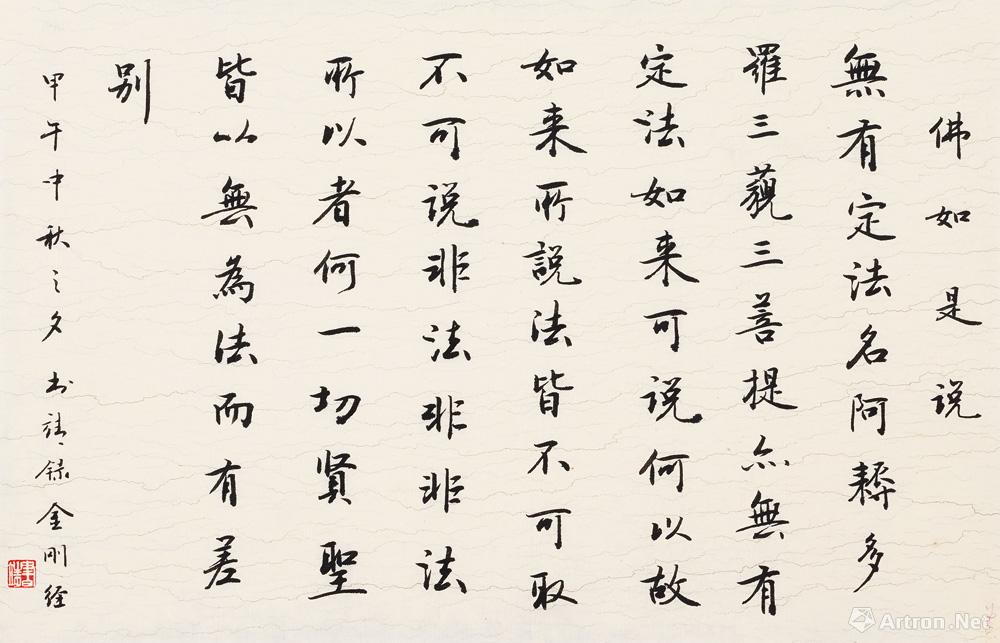 佛如是说
無有定法名阿耨多
羅三藐三菩提亦無有
定法如来可说何以故
如来所說法皆不可取
不可说非法非非法
所以者何一切贤聖
皆以無為法而有差
别
甲午中秋之夕书 录金刚经
Artron.Net